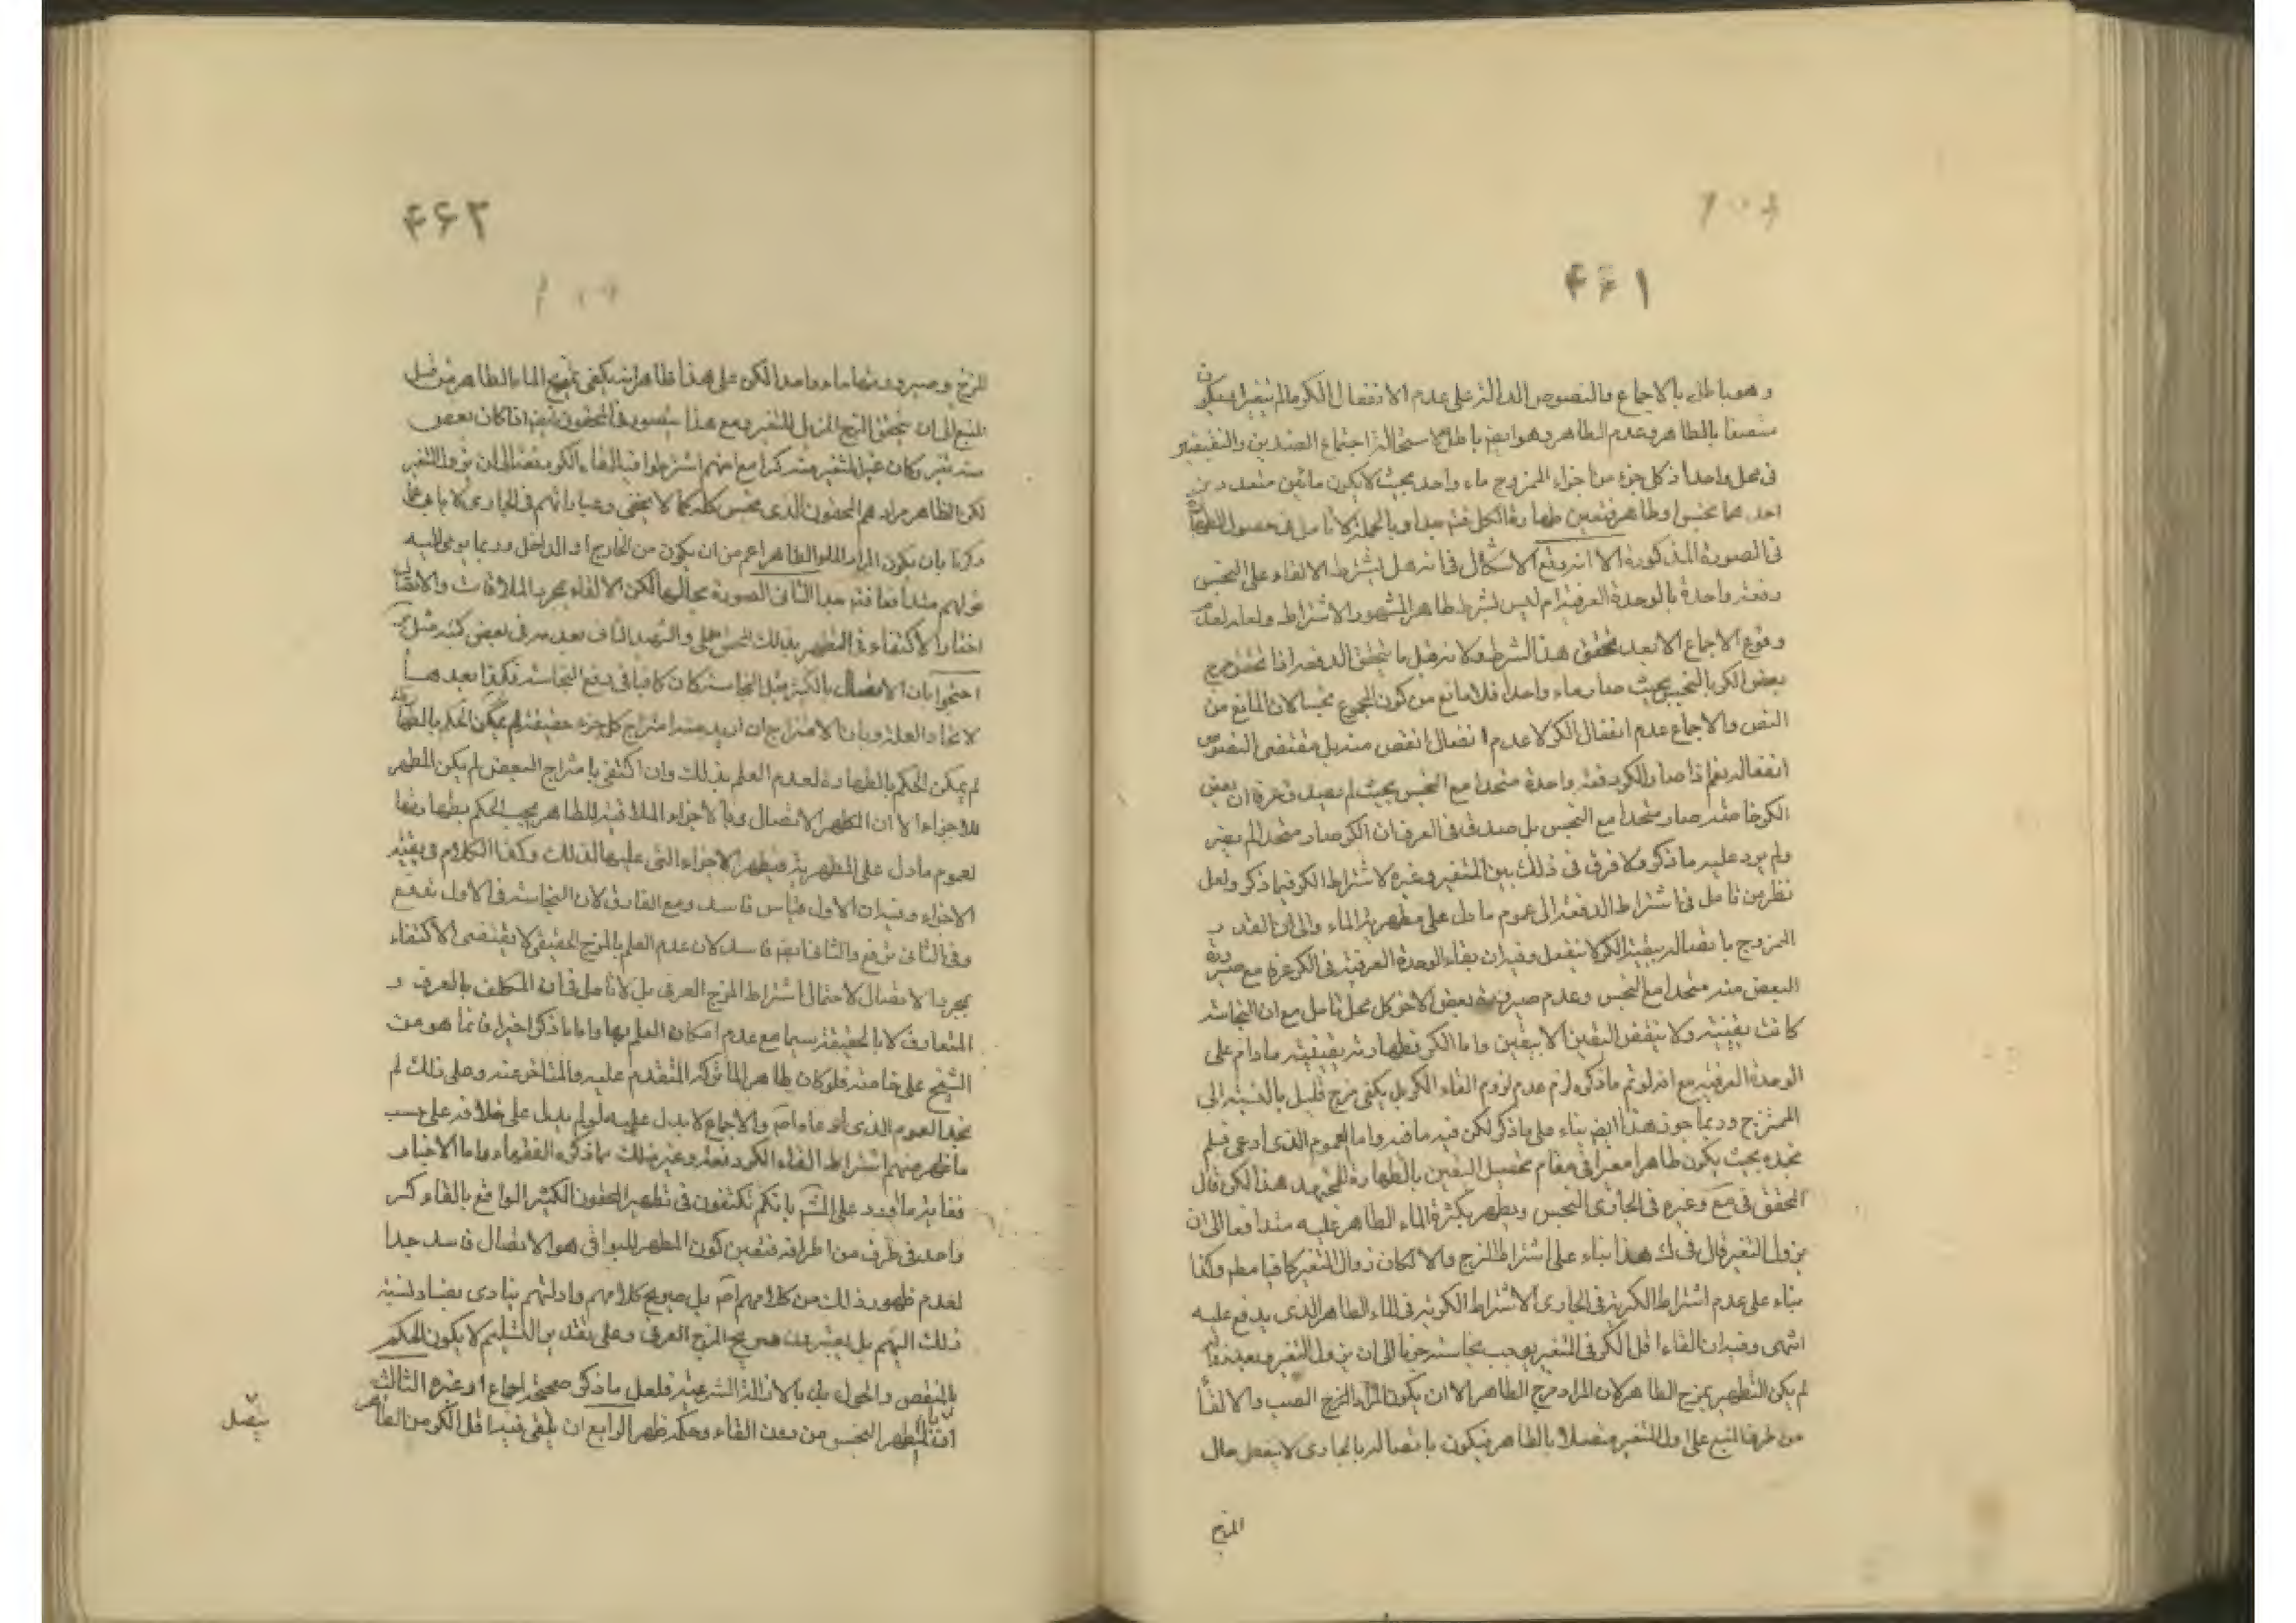 ۴۶۱
وهو باطل بالاجماع والنصوص الدالة على عدم الانفعال الكر مالم يتغير او يكون
متصفا بالطاهر وعدم الطاهر وهو ايضا باطل لاستحالة اجتماع الضدين والنقيضين
فى محل واحد اذ كل جزء من اجزاء الممزوج ماء واحد بحيث لا يكون مائين متعددين
احدهما نجس او طاهر فتعين طهارة الكل فتم جدا وبالجملة لا تامل فى حصول الطهارة
فى الصورة المذكورة الا انه وقع الاشكال فى انه هل يشترط الالقاء على النجس
دفعة واحدة بالوحدة العرفية ام ليس بشرط ظاهر المشهور الاشتراط ولعله لعدم
وقوع الاجماع الا بعد تحقق هذا الشرط ولانه قبل ما يتحقق الدفعة اذا تحقق مزج
بعض الكر بالنجس بحيث صار ماء واحدا فلا مانع من كون المجموع نجسا لان المانع من
النص والاجماع عدم انفعال الكر لا عدم انفعال انقص منه بل مقتضى النصوص
انفعاله نعم اذا صار الكر دفعة واحدة متحدا مع النجس بحيث لم يصدق عرفا ان بعض
الكر خاصة صار متحدا مع النجس بل صدق فى العرف ان الكر صار متحدا لم يضر
ولم يرد عليه ما ذكر ولا فرق فى ذلك بين المتغير وغيره لاشتراط الكر فيما ذكر ولعل
نظر من تامل فى اشتراط الدفعة الى عموم ما دل على مطهرية الماء والى ان القدر
الممزوج باتصاله ببقية الكر لا ينفعل وفيه ان بقاء الوحدة العرفية فى الكر عرفا مع صيرورة
البعض منه متحدا مع النجس وعدم صيرورة بعض الاخر كل محل تامل مع ان النجاسة
كانت يقينية ولا ينقض اليقين الا بيقين واما الكر فطهارته يقينية ما دام على
الوحدة العرفية مع انه لو تم ما ذكره لزم عدم لزوم القاء الكر بل يكفى مزج قليل بالنسبة الى
الممتزج وربما جوز هذا ايضا بناء على ما ذكر لكن فيه ما فيه واما العموم الذى ادعى فلم
نجده بحيث يكون ظاهرا معتبرا فى مقام تحصيل اليقين بالطهارة للمجتهد هذا لكن قال
المحقق فى مع وغيره فى الجارى النجس ويطهر بكثرة الماء الطاهر عليه متدافعا الى ان
يزول التغير قال فى ك هذا بناء على اشتراط المزج والا لكان زوال التغير كافيا مطم وكذا
بناء على عدم اشتراط الكرية فى الجارى لاشتراط الكرية فى الماء الطاهر الذى يدفع عليه
انتهى وفيه ان القاء اقل الكر فى المتغير يوجب نجاسته جزما الى ان يزول التغير وبعد
لم يكن التطهير بمزج الطاهر لان المراد مزج الطاهر الا ان يكون المراد المزج الصب والالقاء
من طرف النبع على اول المتغير متصلا بالطاهر فيكون باتصاله بالجارى لا ينفعل حال
المزج
۴۶۲
المزج وصيرورتهما ماء واحدا لكن على هذا ظاهر انه يكفى الماء الطاهر من قبل
النبع الى ان يتحقق المزج المزيل للتغير ومع هذا يتصور فى المحقون ايضا اذا كان بعض
منه تغير وكان غير المتغير منه كرا مع انهم اشترطوا فيه القاء الكر دفعة الى ان يزول التغير
لكن الظاهر مرادهم المحقون الذى نجس كله كما لا يخفى وعباراتهم فى الجارى لا يابى عما
ذكرنا بان يكون المراد الماء الطاهر اعم من ان يكون من الخارج او الداخل وربما يومى اليه
قولهم متدافعا فتم جدا الثانى الصورة بحالها لكن الالقاء بمجرد الملاقات والاتصال
اختار الاكتفاء فى التطهير بذلك المحقق على والشهيد الثانى بعده فى بعض كتبه
احتجوا بان الاتصال بالكثير قبل النجاسة كان كافيا فى دفع النجاسة فكذا بعدها
لاتحاد العلة وبان الامتزاج ان اريد منه امتزاج كل جزء حقيقة لم يمكن الحكم بالطهارة
لم يمكن الحكم بالطهارة لعدم العلم بذلك وان اكتفى بامتزاج البعض لم يكن المطهر
للاجزاء الا ان المطهر الاتصال وبان الاجزاء الملاقية للطاهر يجب الحكم بطهارتها
لعموم ما دل على المطهرية فيطهر الاجزاء التى عليها لذلك وكذا الكلام فى بقية
الاجزاء وفيه ان الاول قياس فاسد ومع الفارق لان النجاسة فى الاول تدفع
وفى الثانى ترفع والثانى ايضا فاسد لان عدم العلم بالمزج الحقيقى لا يقتضى الاكتفاء
بمجرد الاتصال لاحتمال اشتراط المزج العرفى بل لا تامل فى ان المكلف بالعرف و
المتعارف لا بالحقيقة سيما مع عدم امكان العلم بها واما ما ذكر اخيرا فانما هو من
الشيخ على خاصة فلو كان ظاهرا لما تركه المتقدم عليه والمتاخر عنه وعلى ذلك لم
نجد العموم الذى ادعاه اصم والاجماع لا يدل عليه لو لم يدل على خلافه على حسب
ما ظهر منهم اشتراط القاء الكر دفعة وغير ذلك مما ذكره الفقهاء واما الاخبار
فغاية ما اورد على المشهور بانكم تكتفون فى تطهير المحقون الكثير الواقع بالقاء كر
واحد فى طرف من اطرافه فتعين كون المطهر للبواقى هو الاتصال فاسد جدا
لعدم ظهور ذلك من كلامهم اصم بل صريح كلامهم وادلتهم ينادى بفساد نسبة
ذلك اليهم بل يعتبرون صريح المزج العرفى وعلى تقدير التسليم لا يكون الحكم
بالنقض والحول بل بالادلة الشرعية فلعل ما ذكر صحيح اجماع او غيره الثالث
ان يتطهر النجس من دون القاء وحكمه ظهر الرابع ان يلقى فيه اقل الكر من الطاهر
يتصل